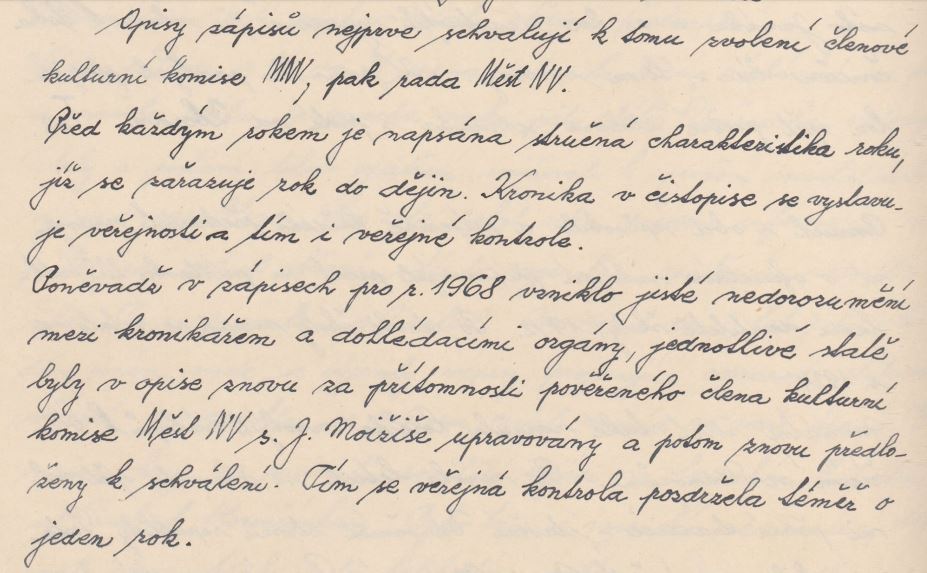 Opisy zápisů nejprve schvalují k tomu zvolení členové
kulturní komise MNV, pak rada Měst NV.
Před každým rokem je napsána stručná charakteristika roku,
jíž se zařazuje rok do dějin. Kronika v čistopise se vystavu-
je veřejnosti a tím i veřejné kontrole.
Poněvadž v zápisech pro r. 1968 vzniklo jisté nedorozumění
mezi kronikářem a dohlédacími orgány, jednotlivé statě
byly v opise znovu za přítomnosti pověřeného člena kulturní
komise Měst NV s. J. Moiřiše upravovány a potom znovu předlo-
ženy k schválení. Tím se veřejná kontrola pozdržela téměř o
jeden rok.